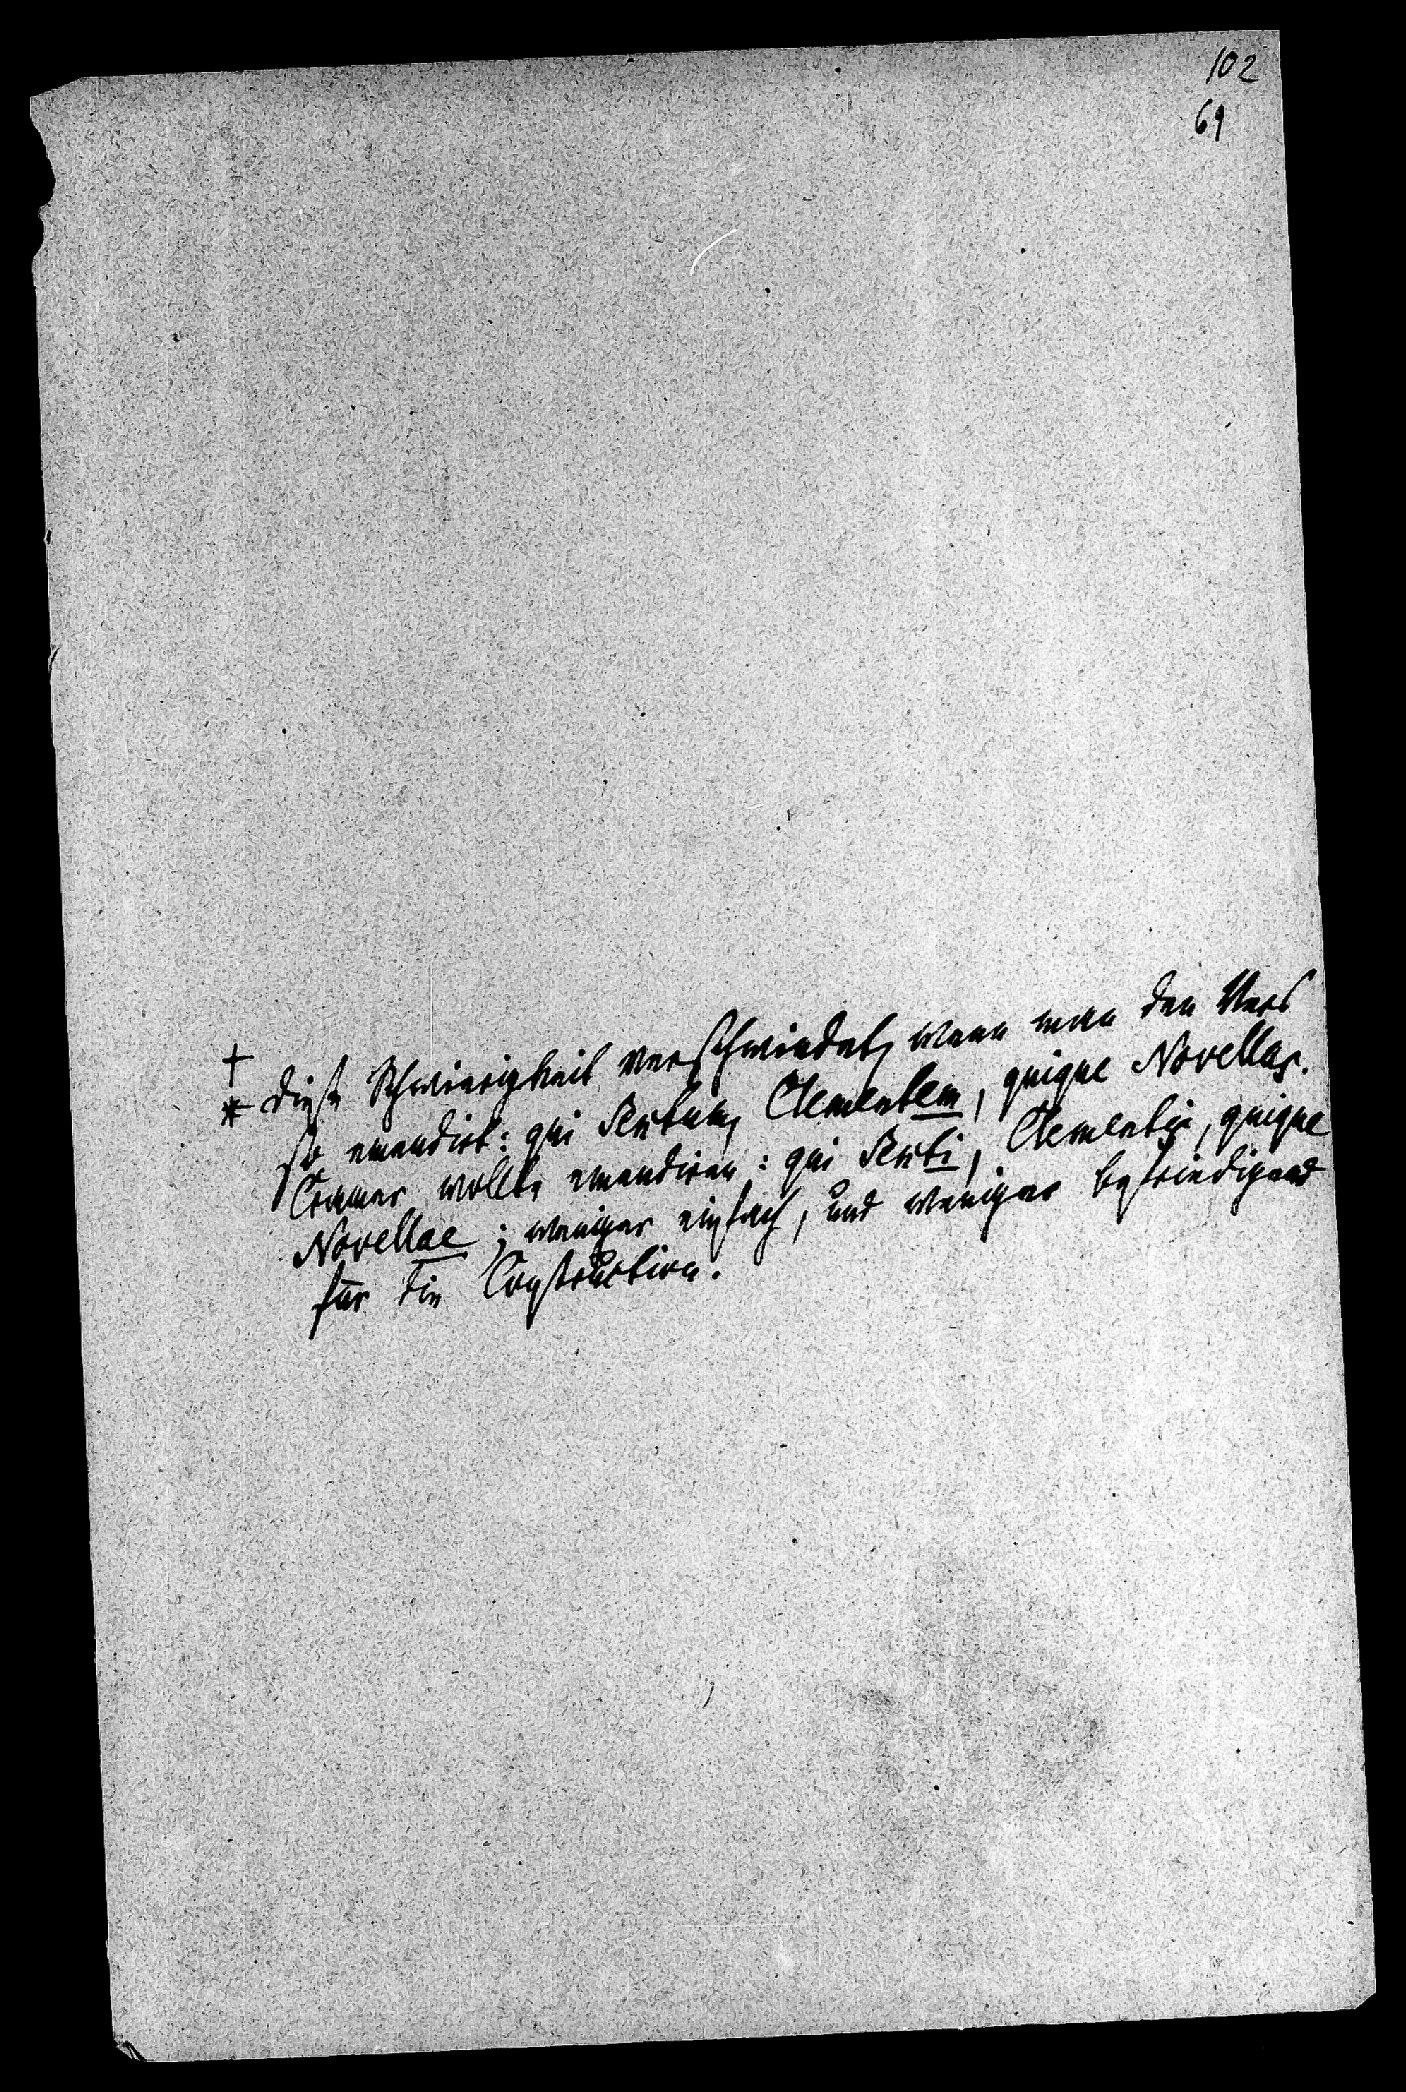 102
69
+
* Diese Schwierigkeit verschwindet, wenn man den Vers
so emendirt: qui Sextum, Clementem, quique Novellas.
Cramer wollte emendiren: qui Sexti, Clementis, quique
Novellae; weniger einfach, und weniger befriedigend
für die Construction.